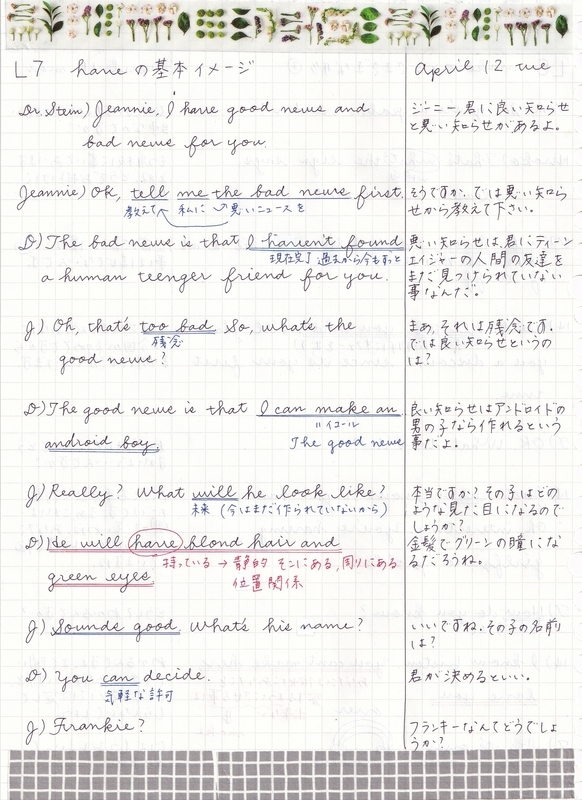 L7 haveの基本イメージ
april 12 tue
Dr. Stein) Jeannie, I have good news and
bad news for you.
ジーニー,君に良い知らせ
と悪い知らせがあるよ。
Jeannie) Ok, tell me the bad news first.
教えて 私に 悪いニュースを
そうですか.では悪い知ら
せから教えて下さい。
D) The bad news is that I haven't found
現在完了 過去から今もずっと
a human teenger friend for you.
悪い知らせは、君にティーン
エイジャーの人間の友達を
まだ見つけられていない
事なんだ。
J) Oh, that's too bad. So, what's the
残念
good news?
まあ,それは残念です.
では良い知らせというの
は?
D) The good news is that I can make an
〃イコール
android boy. The good news
良い知らせはアンドロイドの
男の子なら作れるという
事だよ。
J) Really? What will he look like?
未来 (今はまだ作られていないから)
本当ですか?その子はどの
ような見た目になるので
しょうか?
D) He will have blond hair and
持っている → 静的 そこにある,周りにある
green eyes. 位置関係
金髪でグリーンの瞳にな
るだろうね。
J) Sounds good. What's his name?
いいですね.その子の名前
は?
D) You can decide.
気軽な許可
君が決めるといい。
J) Frankie?
フランキーなんてどうでしょ
うか?